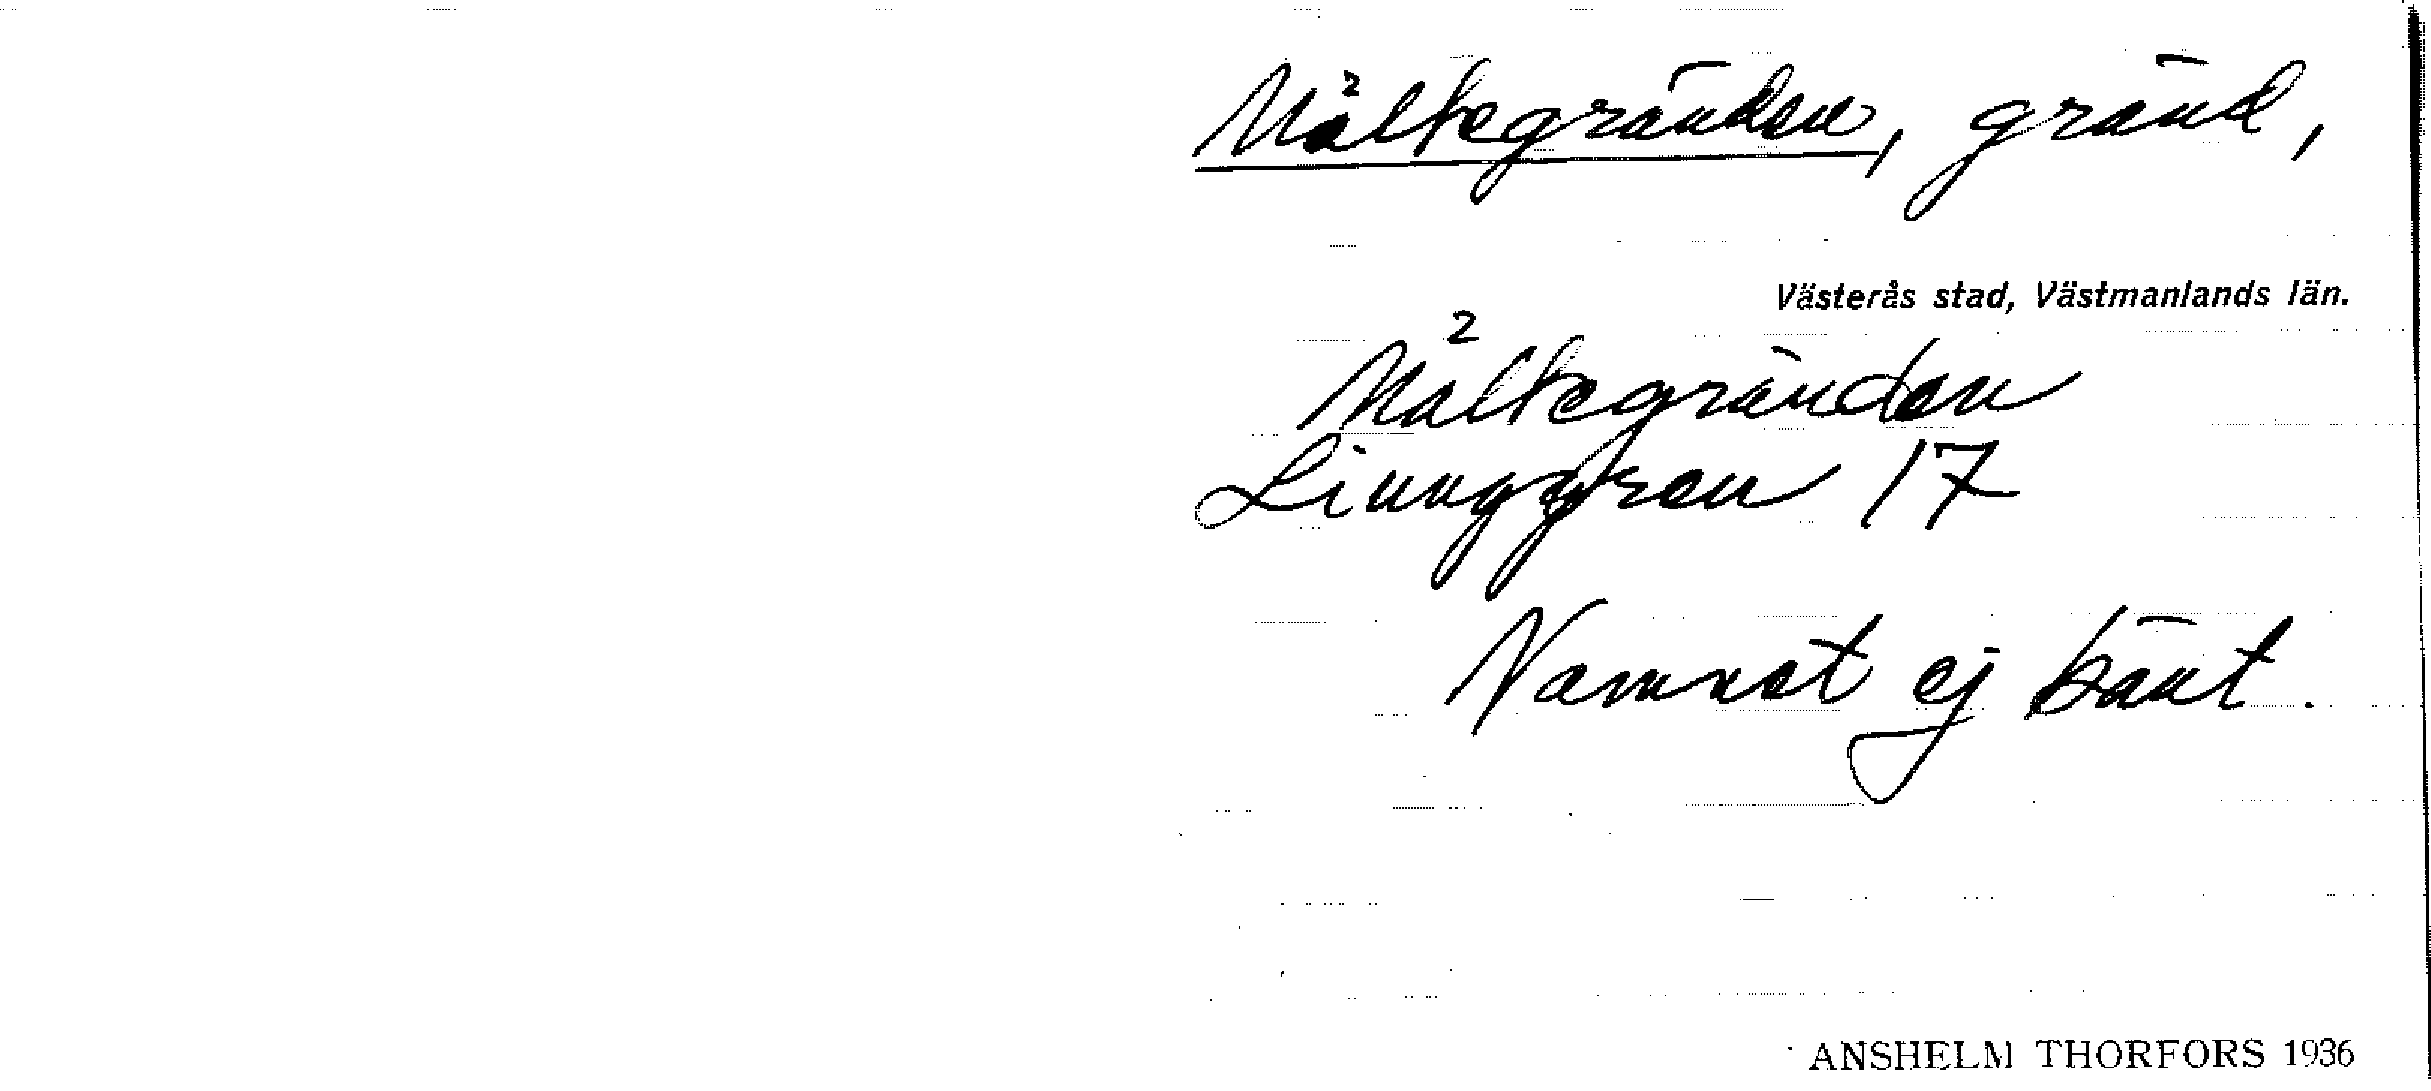 Måltegränden, gränd,
Västerås stad, Västmanlands län.
Måltegränden
Ljunggren 17
Namnet ej känt.
ANSHELM THORFORS 1936